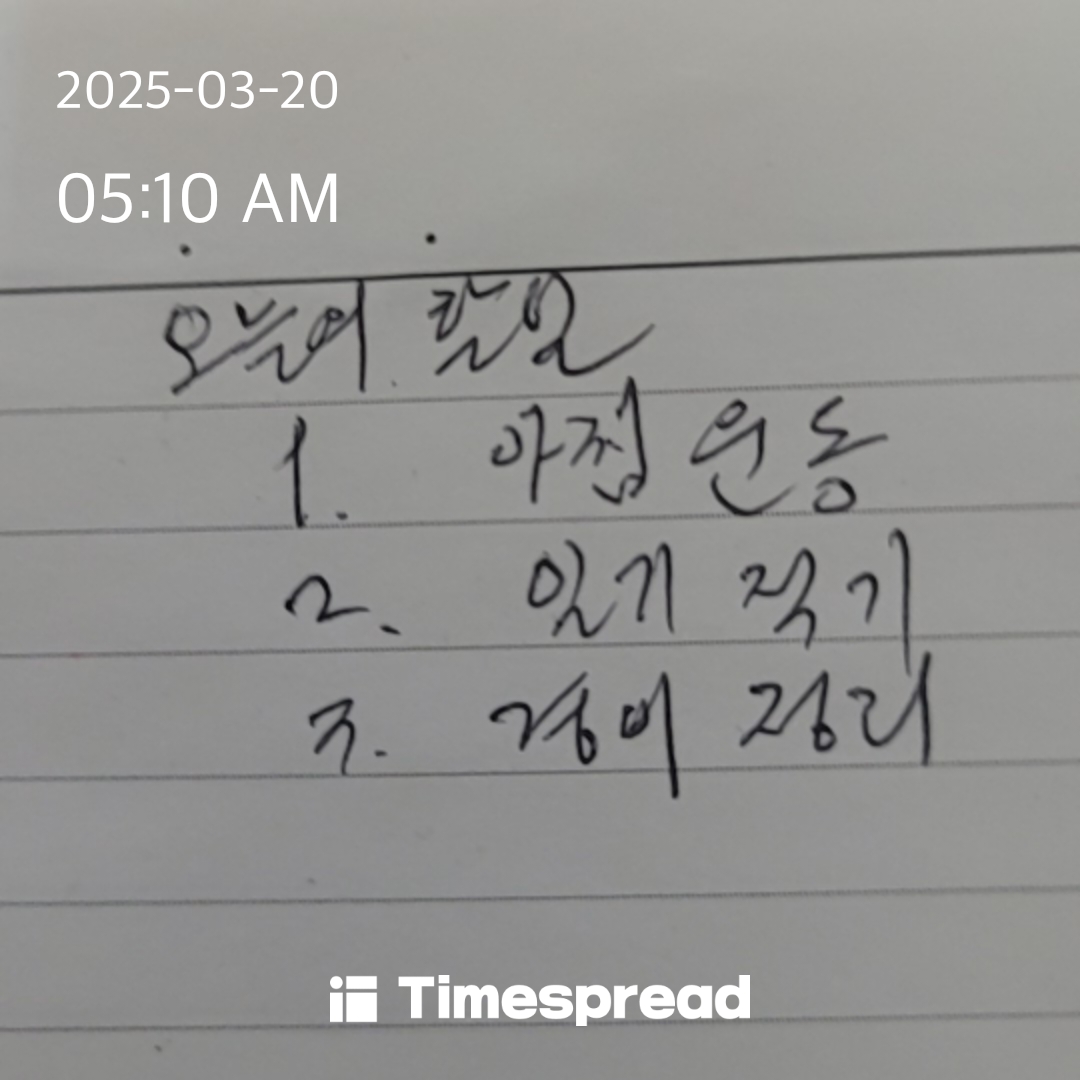 2025-03-20
05:10 AM
오늘에 할일
1. 아침 운동
2. 일기 적기
3. 정리
Timespread